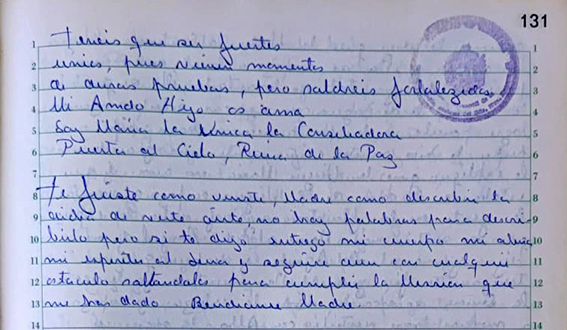 131
1 teneis que ser fuertes 1
2 unios, pues vienen momentos
3 de duras pruebas, pero saldreis fortalezidos
4 Mi Amado Hijo os ama
5 Soy Maria la Unica la Consoladora
6 Puerta al Cielo, Reina de la Paz 6
7 7
8 Te fuiste como viniste, Madre como describir la 8
9 dicha de verte ante, no hay palabras para descri- 9
10 birlo pero si te digo entrego mi cuerpo mi alma 10
11 mi espiritu al Señor y seguire aun con cualquier 11
12 ostaculo saltandolos para cumplir la Mision que 12
13 me has dado Bendiceme Madre. 13
14 14